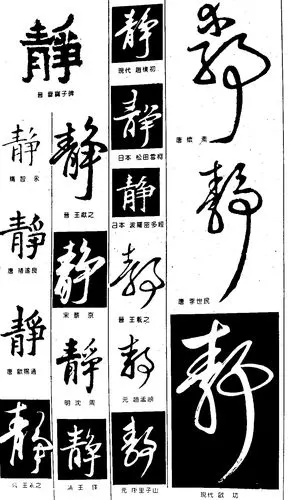 靜
晉 爨寶子碑
靜
隋 智永
靜
唐 褚遂良
靜
唐 歐陽通
靜
王羲之
靜
晉 王獻之
靜
宋 蔡京
靜
明 沈周
靜
清 王
靜
現代 趙樸初
靜
日本 松田雪柯
靜
日本 波羅密多經
靜
晉 王羲之
靜
元 趙孟頫
靜
元 康里子山
靜
唐 懷素
靜
唐 李世民
靜
現代 啟功